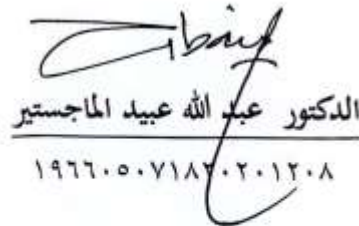 الدكتور عبد الله عبيد الماجستير
١٩٦٦٠٥٠٧١٨٢٠٢٠١٢٠٨